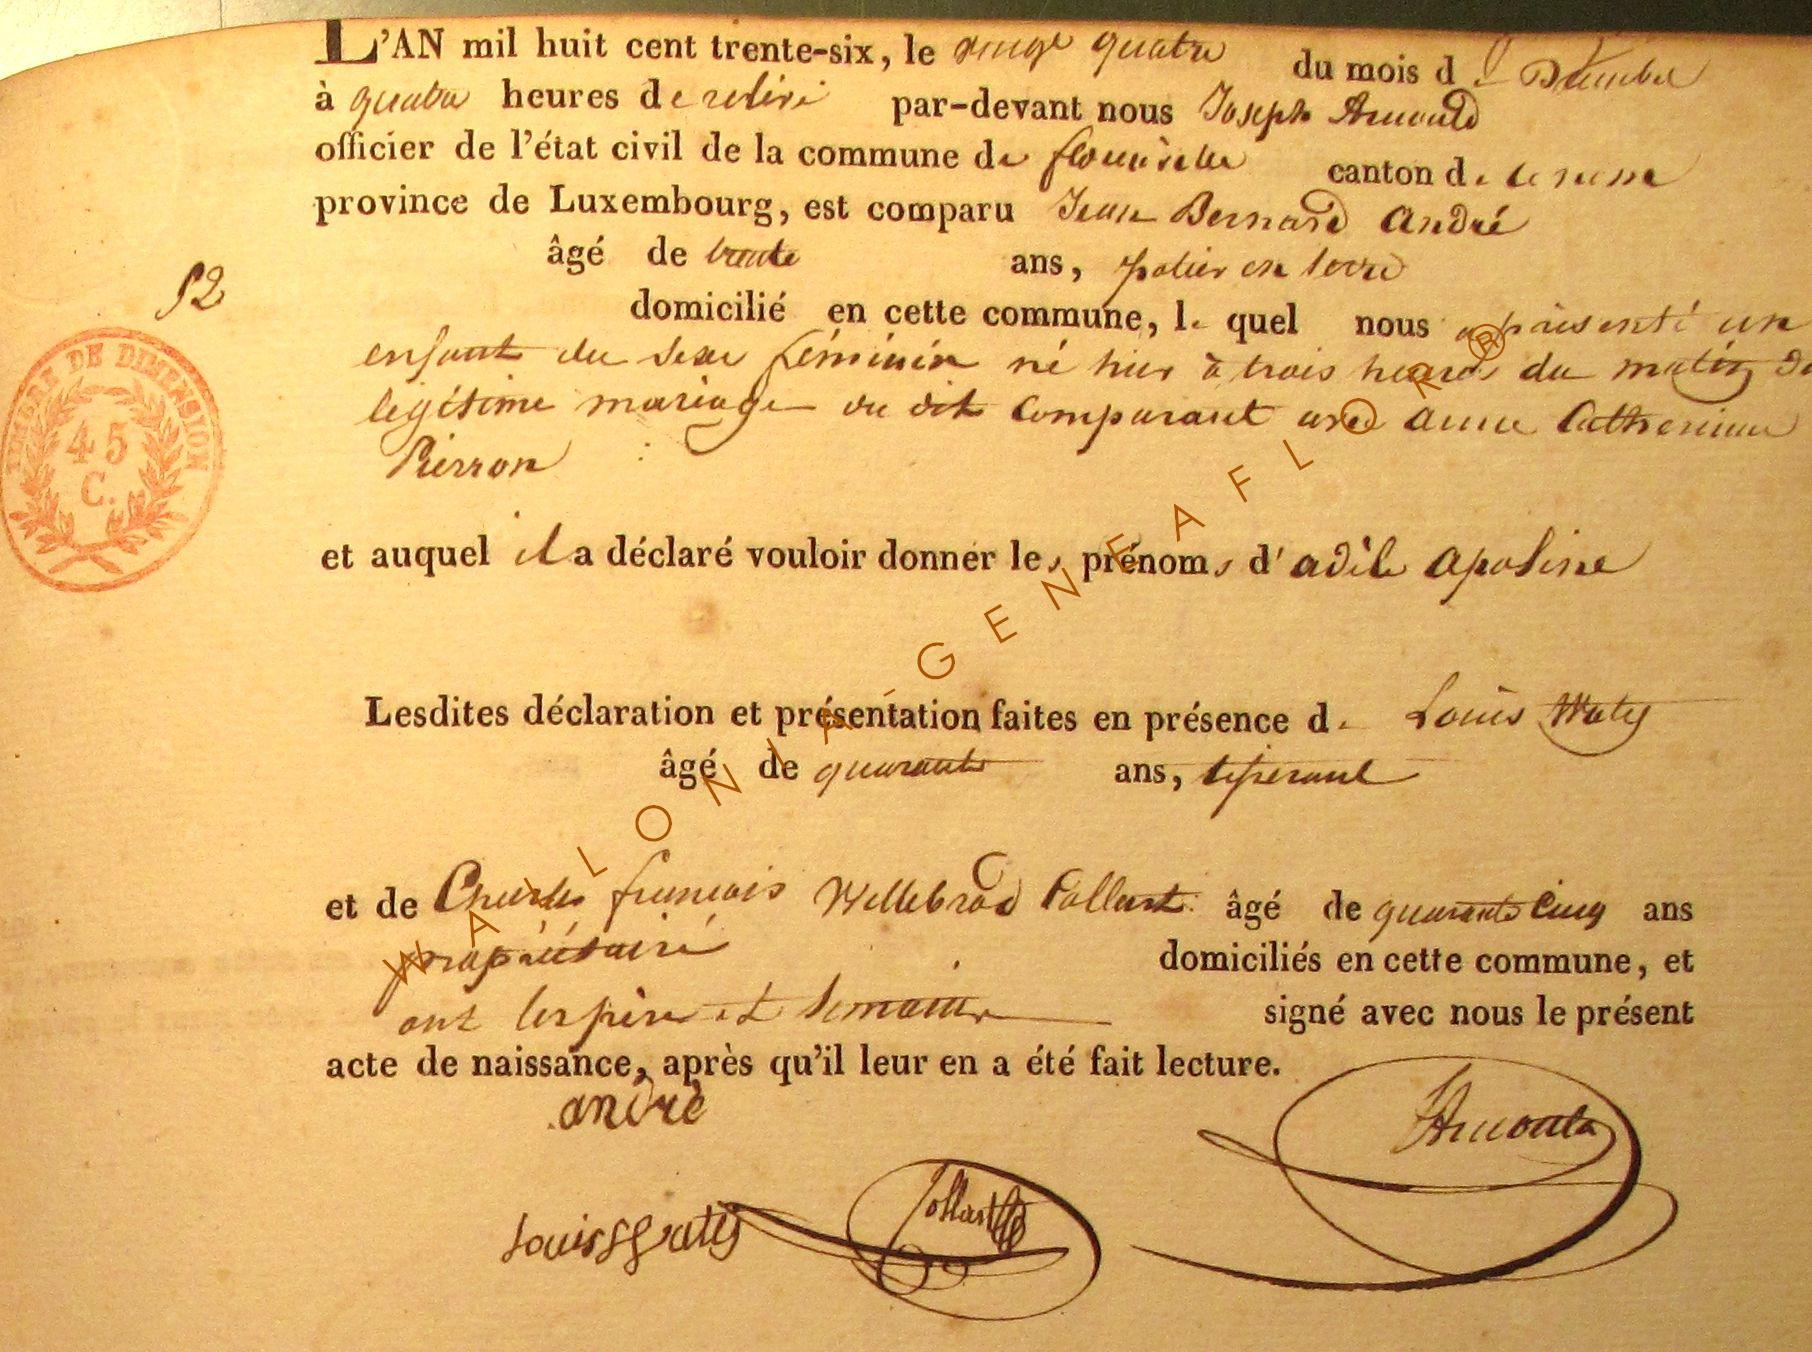 L'AN mil huit cent trente-six, le vingt quatre du mois de Décembre
à quatre heures de relevé par-devant nous Joseph Arnould
officier de l'état civil de la commune de florenville canton de
province de Luxembourg, est comparu Jean Bernard André
âgé de trente ans, potier en terre
52
domicilié en cette commune, le quel nous a présenté un
enfant du sexe féminin né hier à trois heures du matin De
legitime mariage du dit Comparant avec anne Catherinne
Pierron
TIMBRE DE DIMENSION
45
C.
et auquel il a déclaré vouloir donner les prénoms d'adèle apoline
Lesdites déclaration et présentation faites en présence de Louis Watÿ
âgé de quarante ans, tisserant
et de Charles françois Willebrod Collart âgé de quarante Cinq ans
propriétaire domiciliés en cette commune, et
ont les père et temoins signé avec nous le présent
acte de naissance, après qu'il leur en a été fait lecture.
andré
JArnould
Louis Watÿ
Collart
WALLONIA-GENEAFLOR®